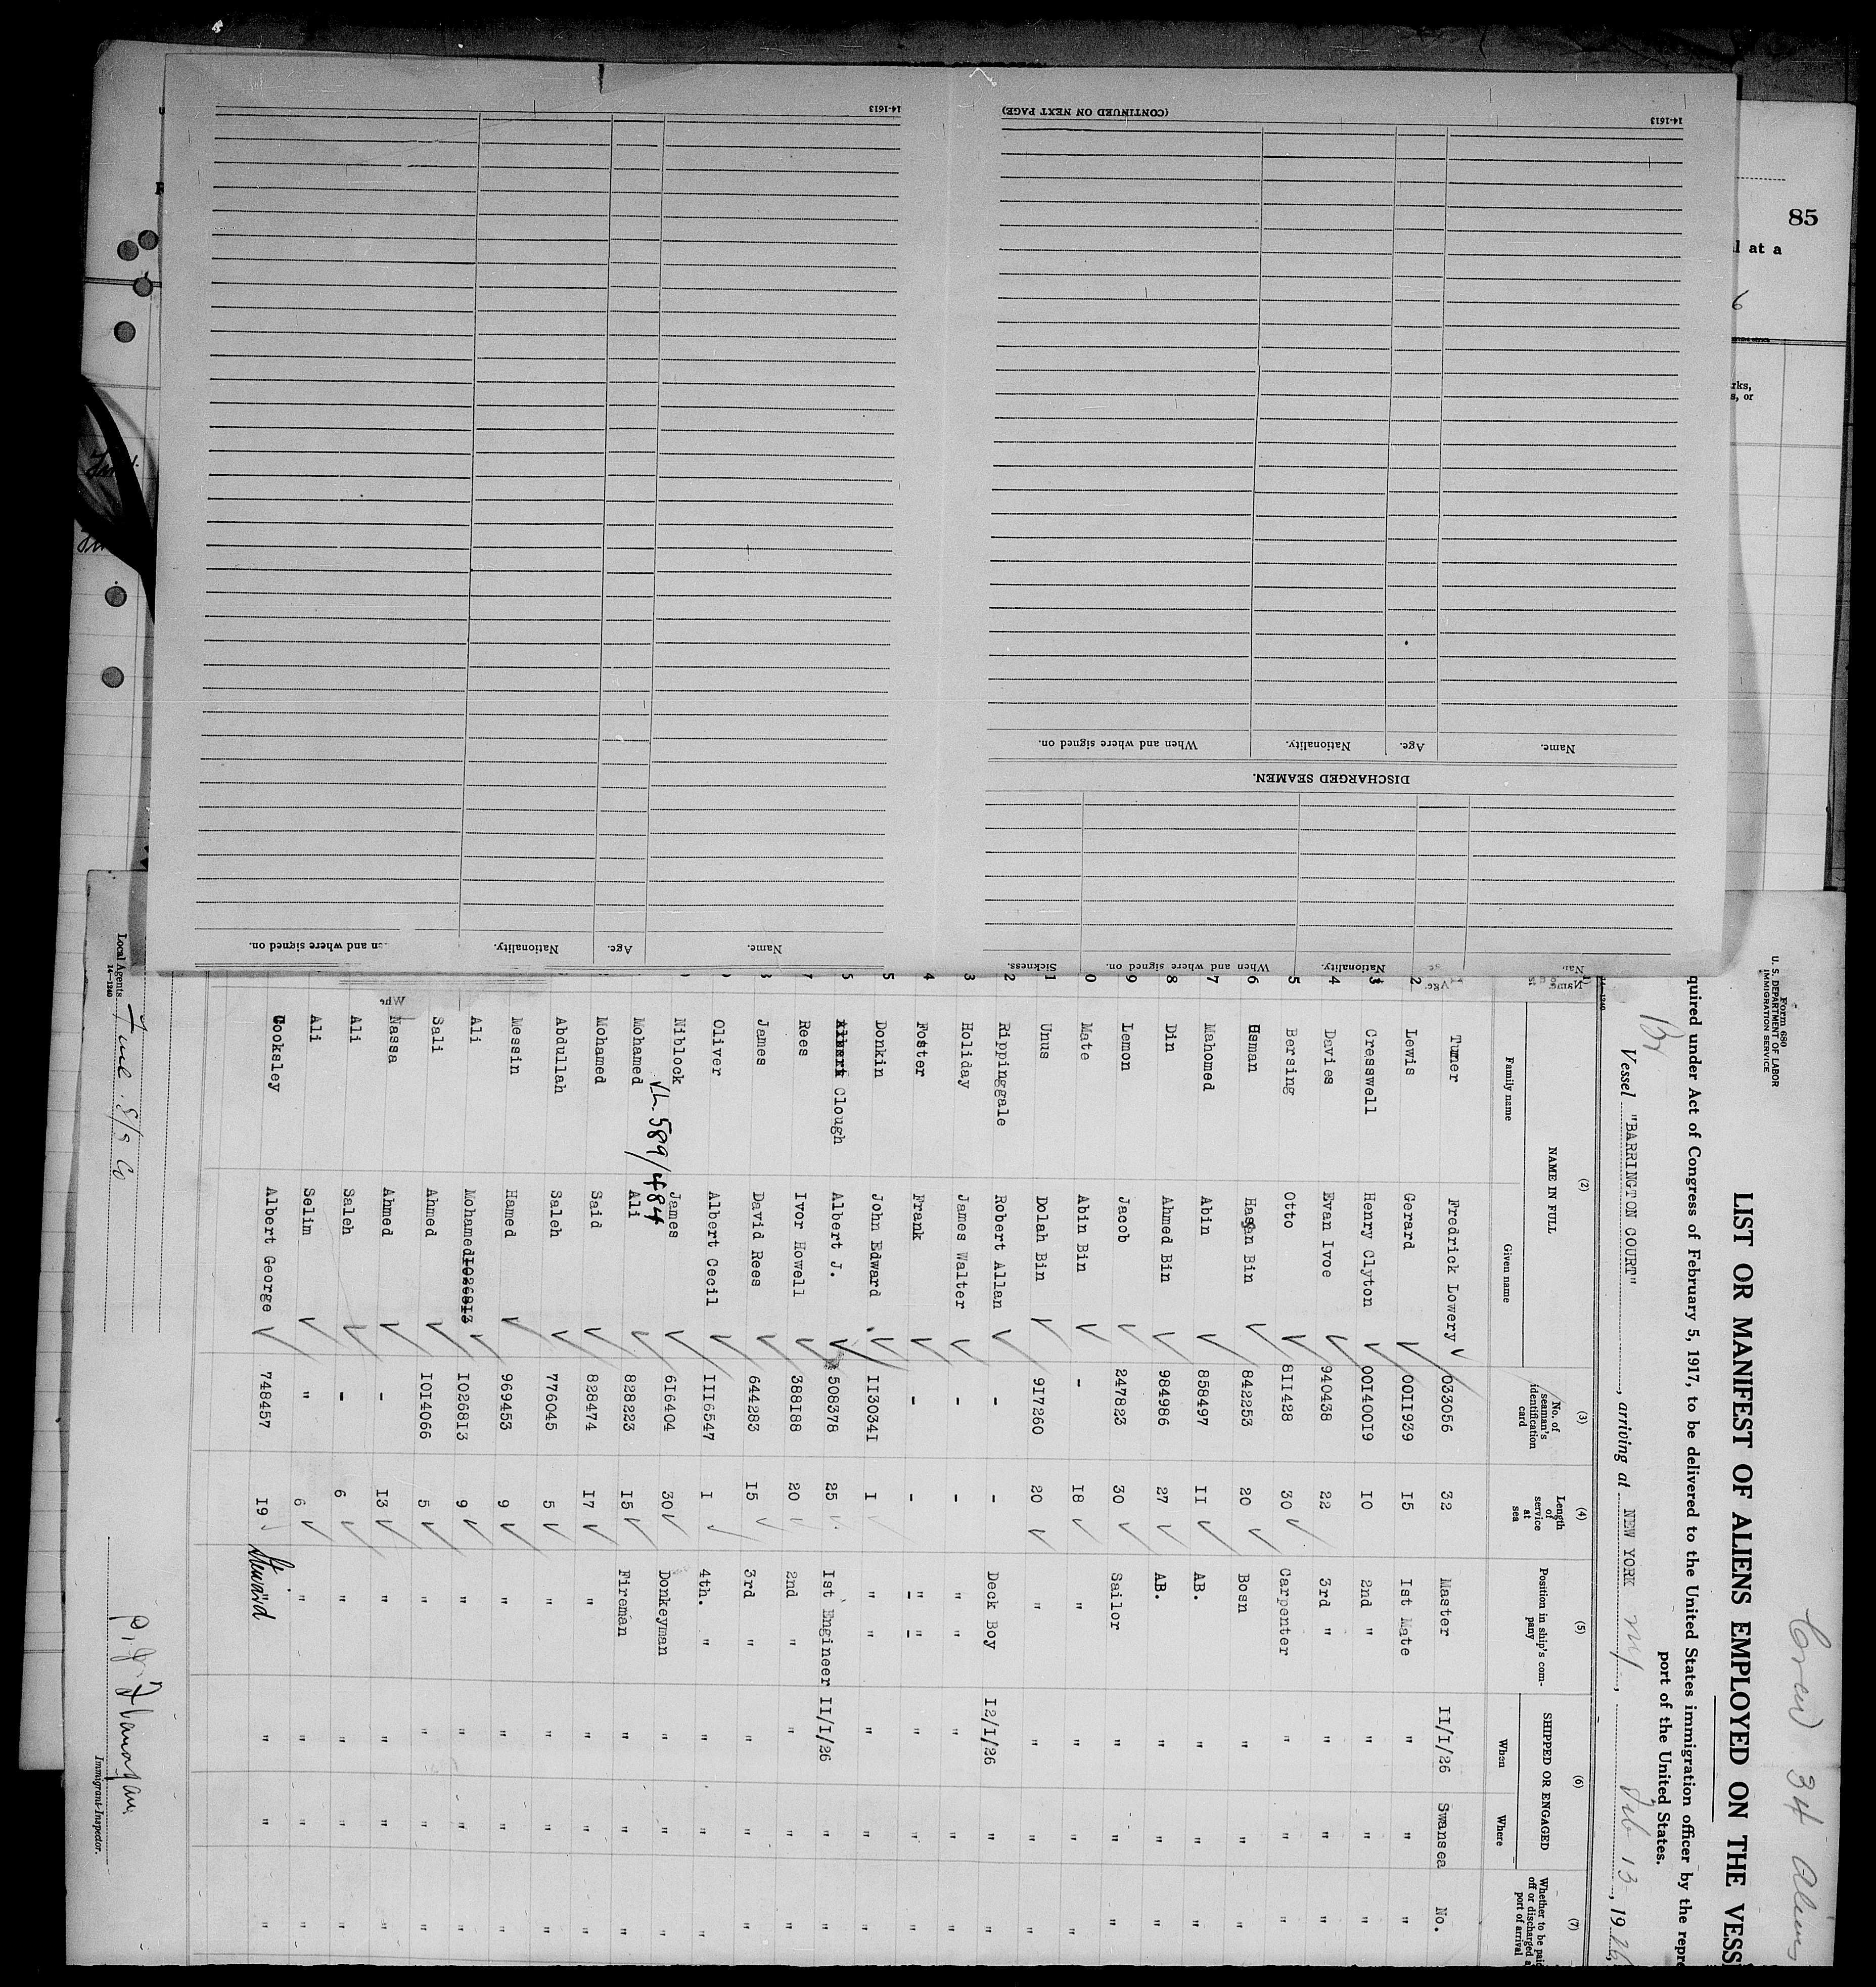 85
l at a
rks,
s, or
14-1613
(CONTINUED ON NEXT PAGE)
14-1613
Name.
Age.
Nationality.
When and where signed on.
DISCHARGED SEAMEN.
Age.
Nationality.
When and where signed on.
Sickness.
Name.
Age.
Nationality.
and where signed on.
Crew 34 Aliens
Form 680
U. S. DEPARTMENT OF LABOR
IMMIGRATION SERVICE
LIST OR MANIFEST OF ALIENS EMPLOYED ON THE VESS
quired under Act of Congress of February 5, 1917, to be delivered to the United States immigration officer by the repre
port of the United States.
Br
Vessel "BARRINGTON COURT", arriving at NEW YORK NY, Feb 13, 1926
(2) (3) (4) (5) (6) (7)
NAME IN FULL
Family name Given name
No. of seaman's identification card
Length of service at sea
Position in ship's company
SHIPPED OR ENGAGED
When Where
Whether to be paid off or discharged at port of arrival
Turner Fredrick Lowery 033056 32 Master 11/1/26 Swansea No.
2 Lewis Gerard 0011939 15 1st Mate " " "
3 Cresswell Henry Clyton 00140019 10 2nd " " " "
4 Davies Evan Ivoe 940438 22 3rd " " " "
5 Bersing Otto 811428 30 Carpenter " " "
6 Osman Hassan Bin 842253 20 Bosn " " "
7 Mahomed Abin 858497 11 AB. " " "
8 Din Ahmed Bin 984986 27 AB. " " "
9 Lemon Jacob 247823 30 Sailor " " "
0 Mate Abin Bin - 18 " " " "
1 Unus Dolah Bin 917260 20 " " " "
2 Rippinggale Robert Allan - - Deck Boy 12/1/26 " "
3 Holiday James Walter - - " " " " "
4 Foster Frank - - " " " " "
5 Donkin John Edward 1130341 1 " " " " "
Clough Albert J. 508378 25 1st Engineer 11/1/26 " "
Rees Ivor Howell 388188 20 2nd " " " "
James David Rees 644283 15 3rd " " " "
Oliver Albert Cecil 1116547 1 4th. " " " "
Niblock James 616404 30 Donkeyman " " "
589/484
Mohamed Ali 828223 15 Fireman " " "
Mohamed Said 828474 17 " " " "
Abdullah Saleh 776045 5 " " " "
Messin Hamed 969453 9 " " " "
Ali Mohamed 1026813 1026813 9 " " " "
Sali Ahmed 1014066 5 " " " "
Nassa Ahmed - 13 " " " "
Ali Saleh - 6 " " " "
Ali Selim " 6 " " " "
Cooksley Albert George 748457 19 Steward " " "
Local Agents
14-1240
Immigrant-Inspector.